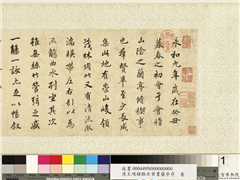 永和九年歲在癸丑
暮春之初會于會稽
山陰之蘭亭脩禊事
也羣賢畢至少長咸
集此地有崇山峻領
茂林脩竹又有清流激
湍暎帶左右引以為
流觴曲水列坐其次
雖無絲竹管弦之盛
一觴一詠亦足以暢叙
1